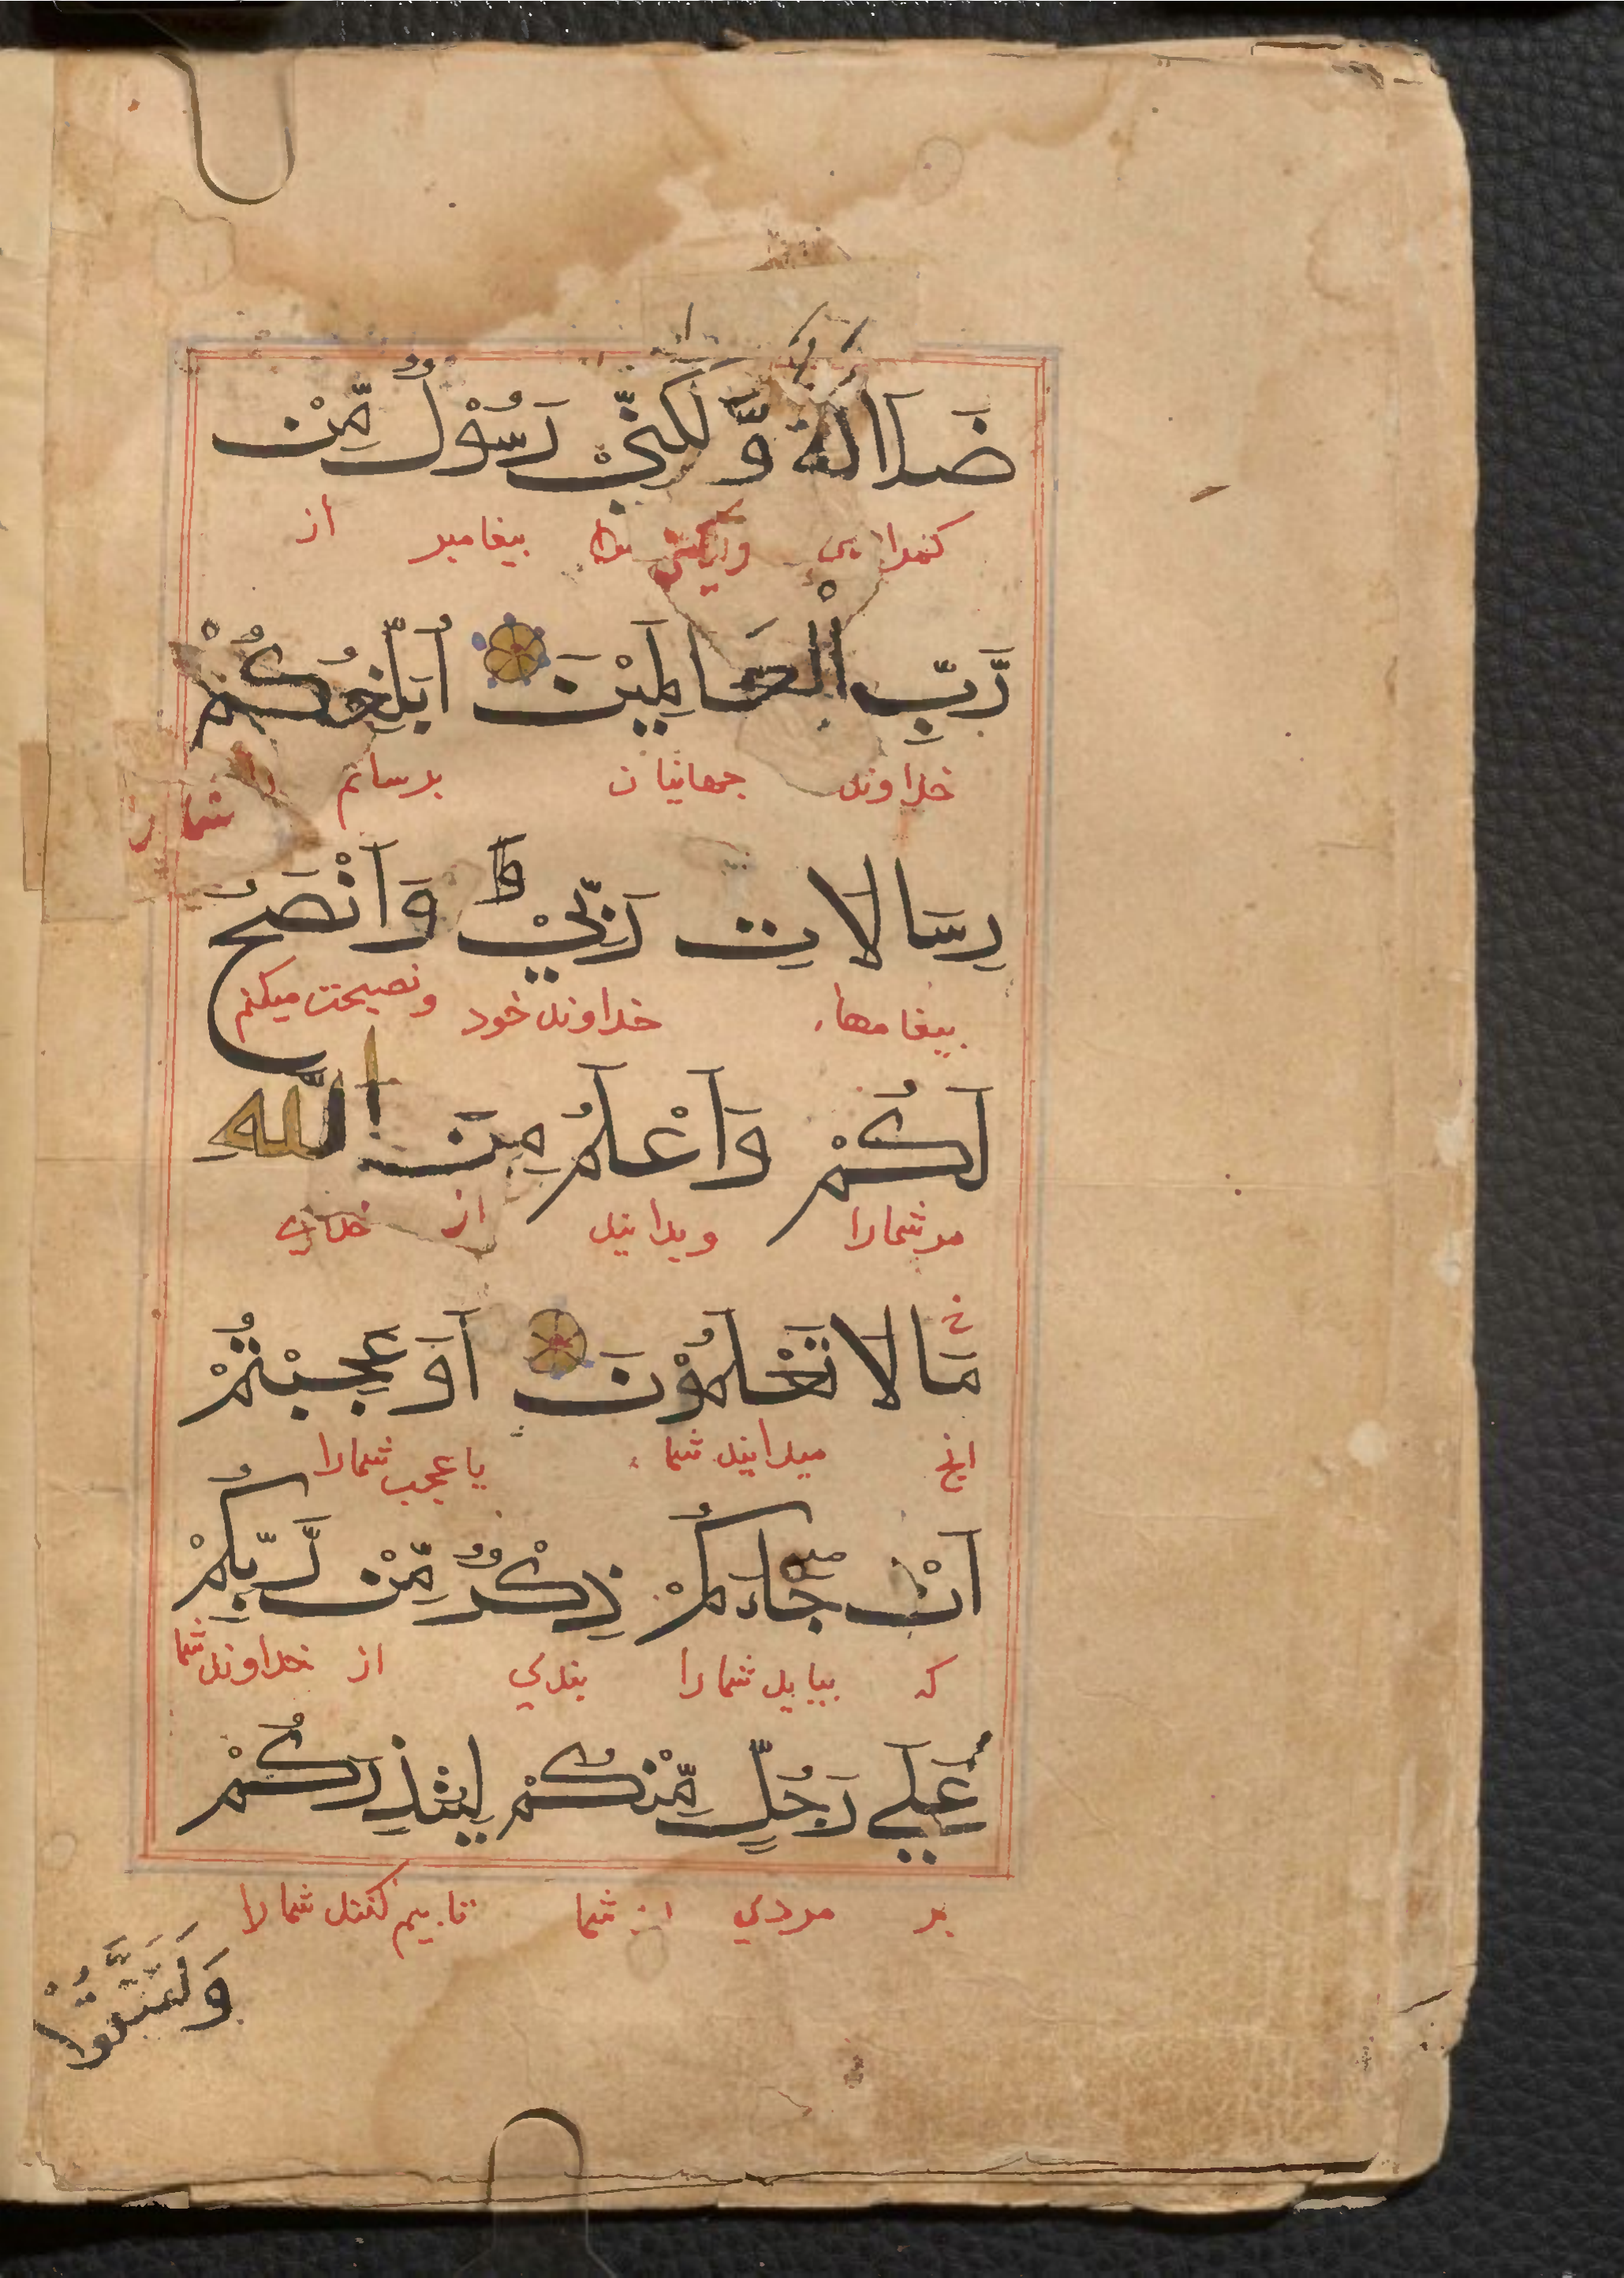 ضَلَالَةٌ وَّلٰكِنِّيْ رَسُوْلٌ مِّنْ
كمراهى پيغامبر از
رَّبِّ الْعَالَمِيْنَ اُبَلِّغُكُمْ
خداوند جهانيان برسانم شما را
رِسَالَاتِ رَبِّيْ ط وَاَنْصَحُ
پيغامهاء خداوند خود ونصيحت ميكنم
لَكُمْ وَاَعْلَمُ مِنَ اللّٰهِ
مر شمارا وبدانيد از خداي
مَا لَا تَعْلَمُوْنَ اَوَعَجِبْتُمْ
انچ ميدانيد شما يا عجب شمارا
اَنْ جَاءَكُمْ ذِكْرٌ مِّنْ رَّبِّكُمْ
كه بيايد شمارا پندي از خداوند شما
عَلٰي رَجُلٍ مِّنْكُمْ لِيُنْذِرَكُمْ
بر مردي از شما تا بيم كنند شمارا
وَلِتَتَّقُوْا